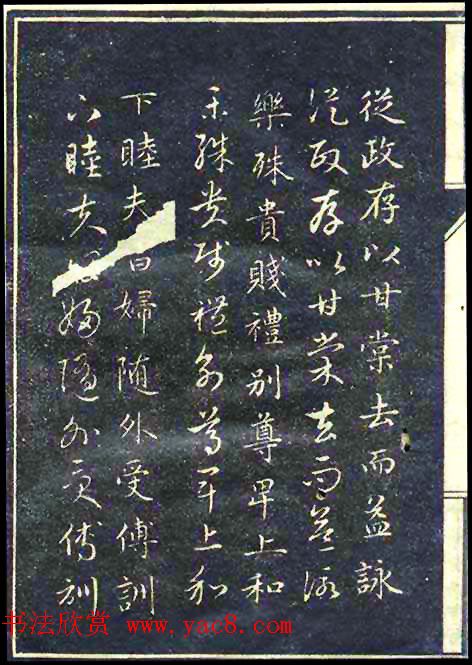 從政存以甘棠去而益詠
從政存以甘棠去而益詠
樂殊貴賤禮别尊卑上和
樂殊貴賤禮别尊卑上和
下睦夫婦随外受傅訓
下睦夫婦随外受傅訓
书法欣赏 www.yac8.com